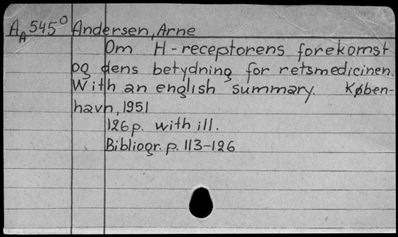 AA545° Andersen, Arne
Om H-receptorens forekomst
og dens betydning for retsmedicinen.
With an english summary. Køben-
havn, 1951
126p. with ill.
Bibliogr. p. 113-126